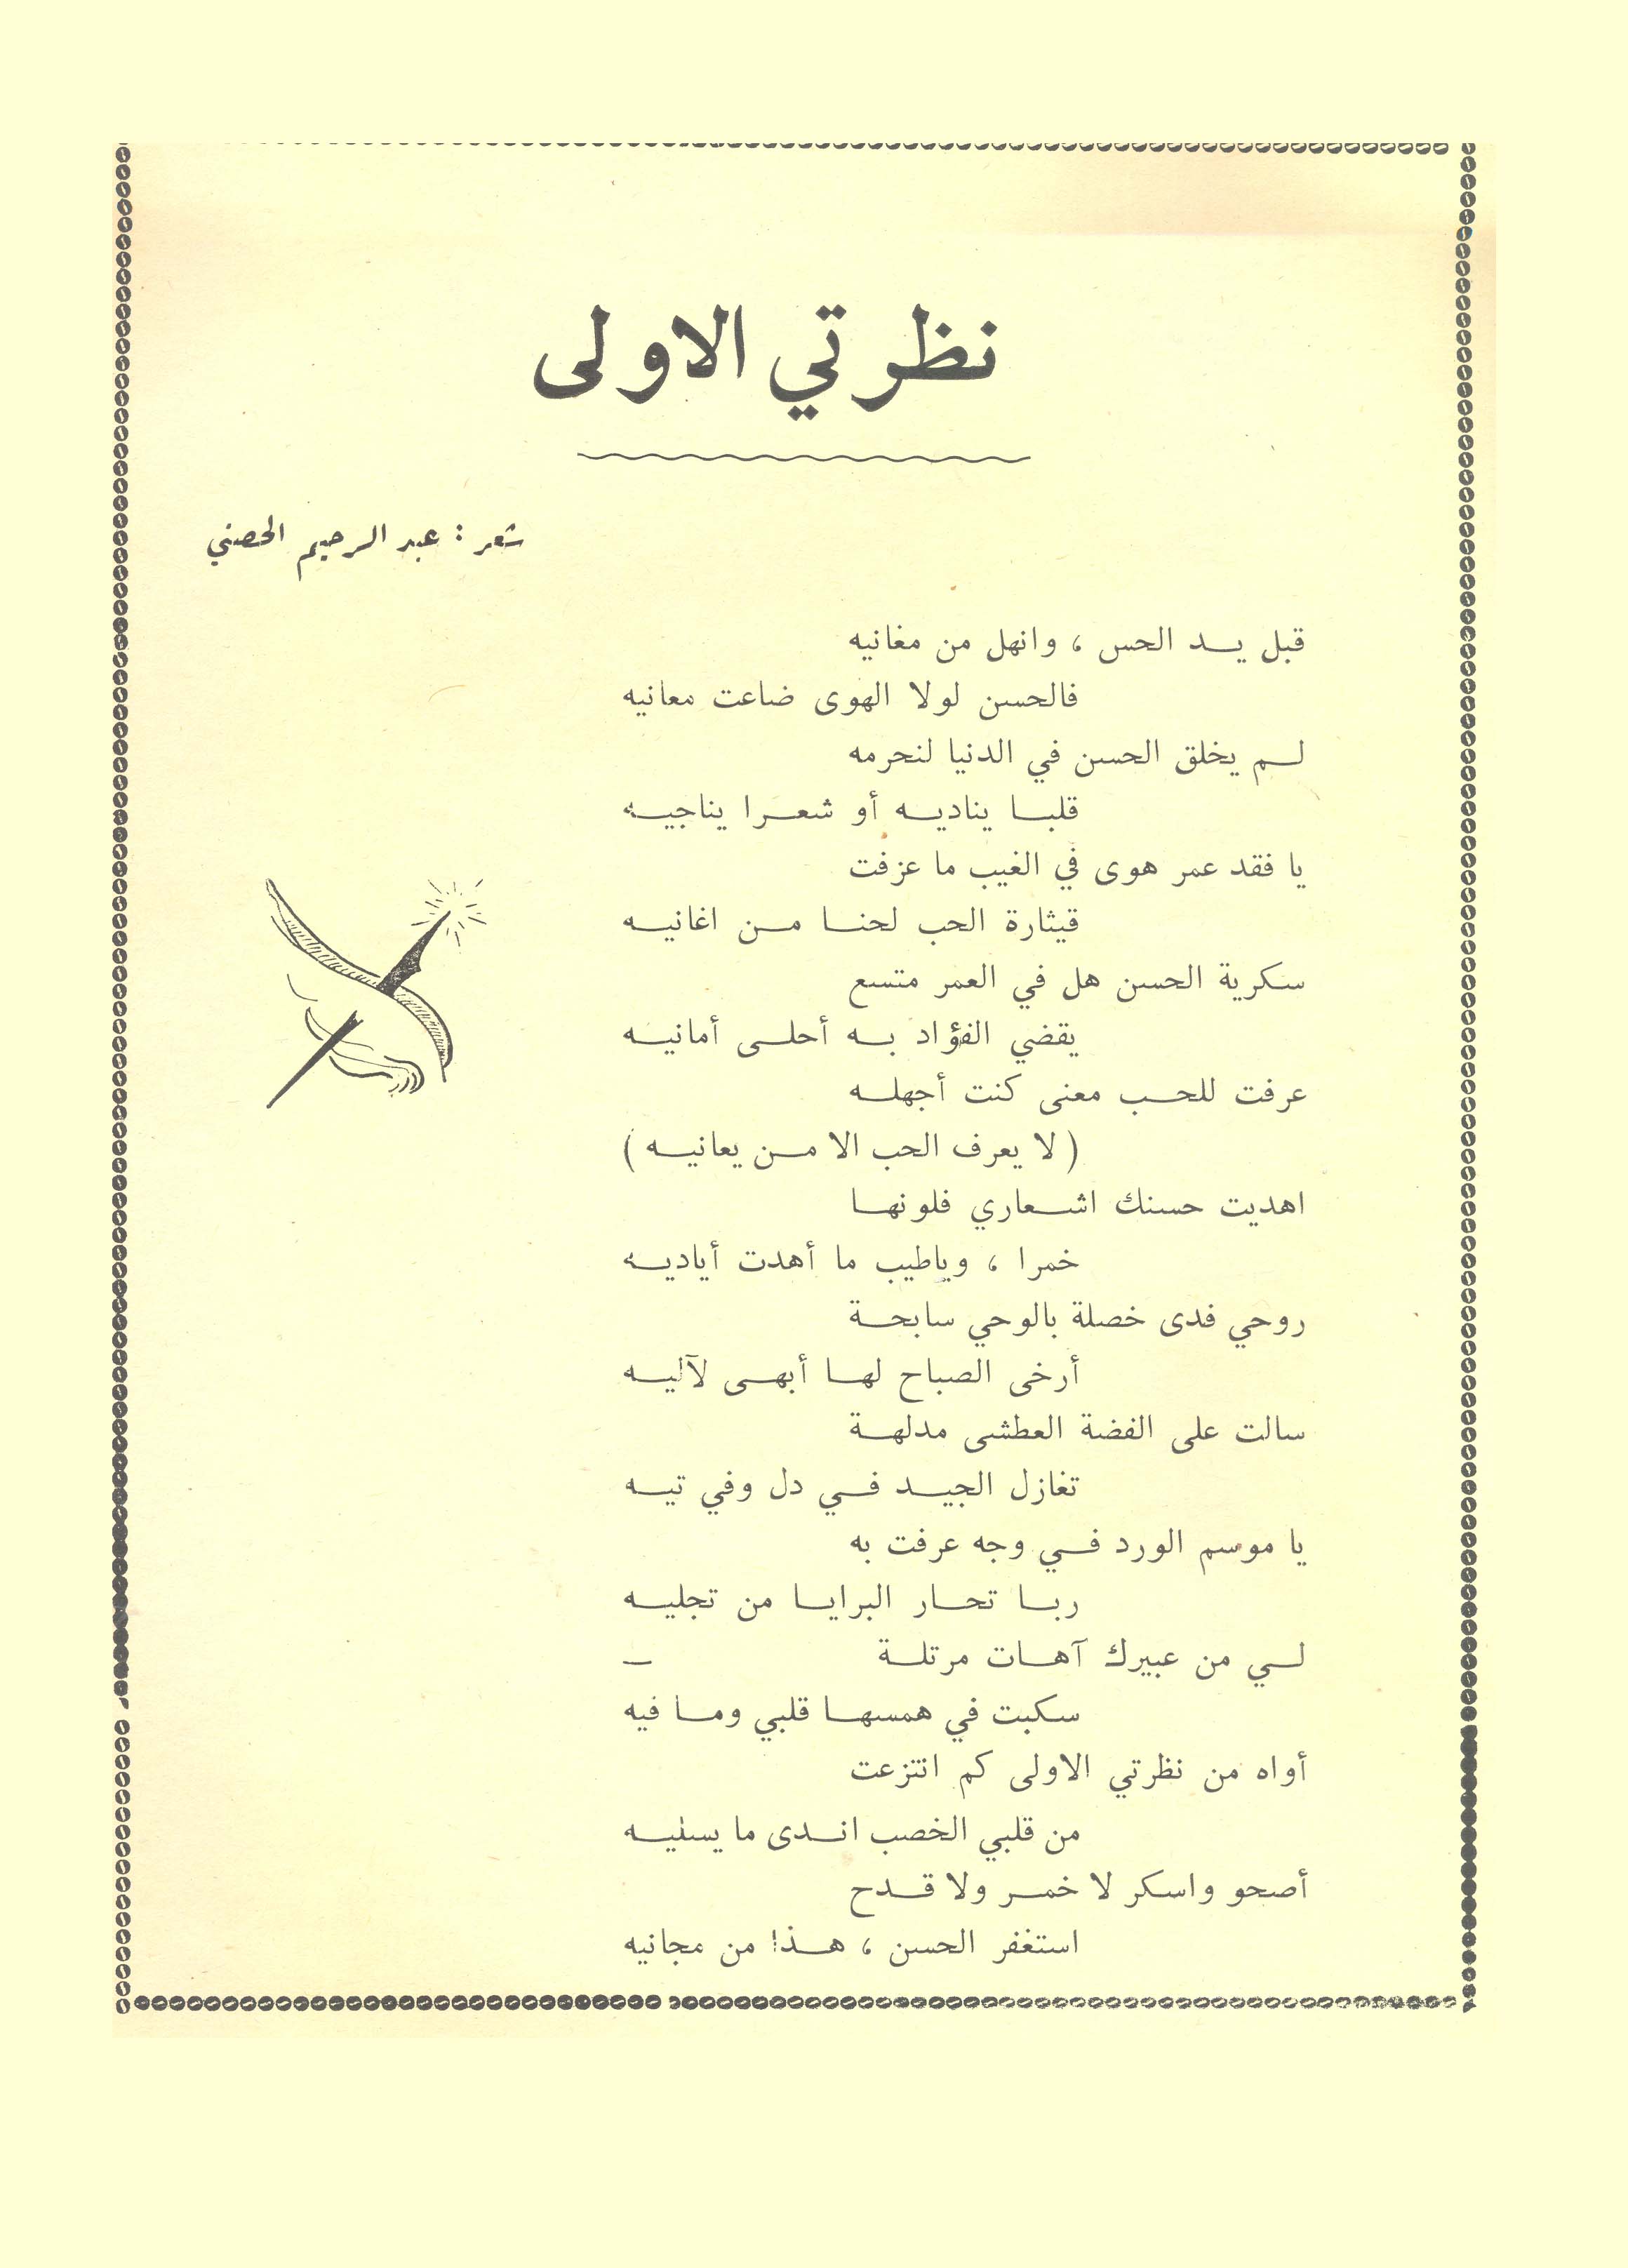 نظرتي الاولى
شعر : عبد الرحيم الحصني
قبل يد الحس ، وانهل من مغانيه
فالحسن لولا الهوى ضاعت معانيه
لم يخلق الحسن في الدنيا لنحرمه
قلبا يناديه أو شعرا يناجيه
يا فقد عمر هوى في الغيب ما عزفت
قيثارة الحب لحنا من اغانيه
سكرية الحسن هل في العمر متسع
يقضي الفؤاد به أحلى أمانيه
عرفت للحب معنى كنت أجهله
( لا يعرف الحب الا من يعانيه )
اهديت حسنك اشعاري فلونها
خمرا ، وياطيب ما أهدت أياديه
روحي فدى خصلة بالوحي سابحة
أرخى الصباح لها أبهى لآليه
سالت على الفضة العطشى مدلهة
تغازل الجيد في دل وفي تيه
يا موسم الورد في وجه عرفت به
ربا تحار البرايا من تجليه
لي من عبيرك آهات مرتلة –
سكبت في همسها قلبي وما فيه
أواه من نظرتي الاولى كم انتزعت
من قلبي الخصب اندى ما يسليه
أصحو واسكر لا خمر ولا قدح
استغفر الحسن ، هذا من مجانيه